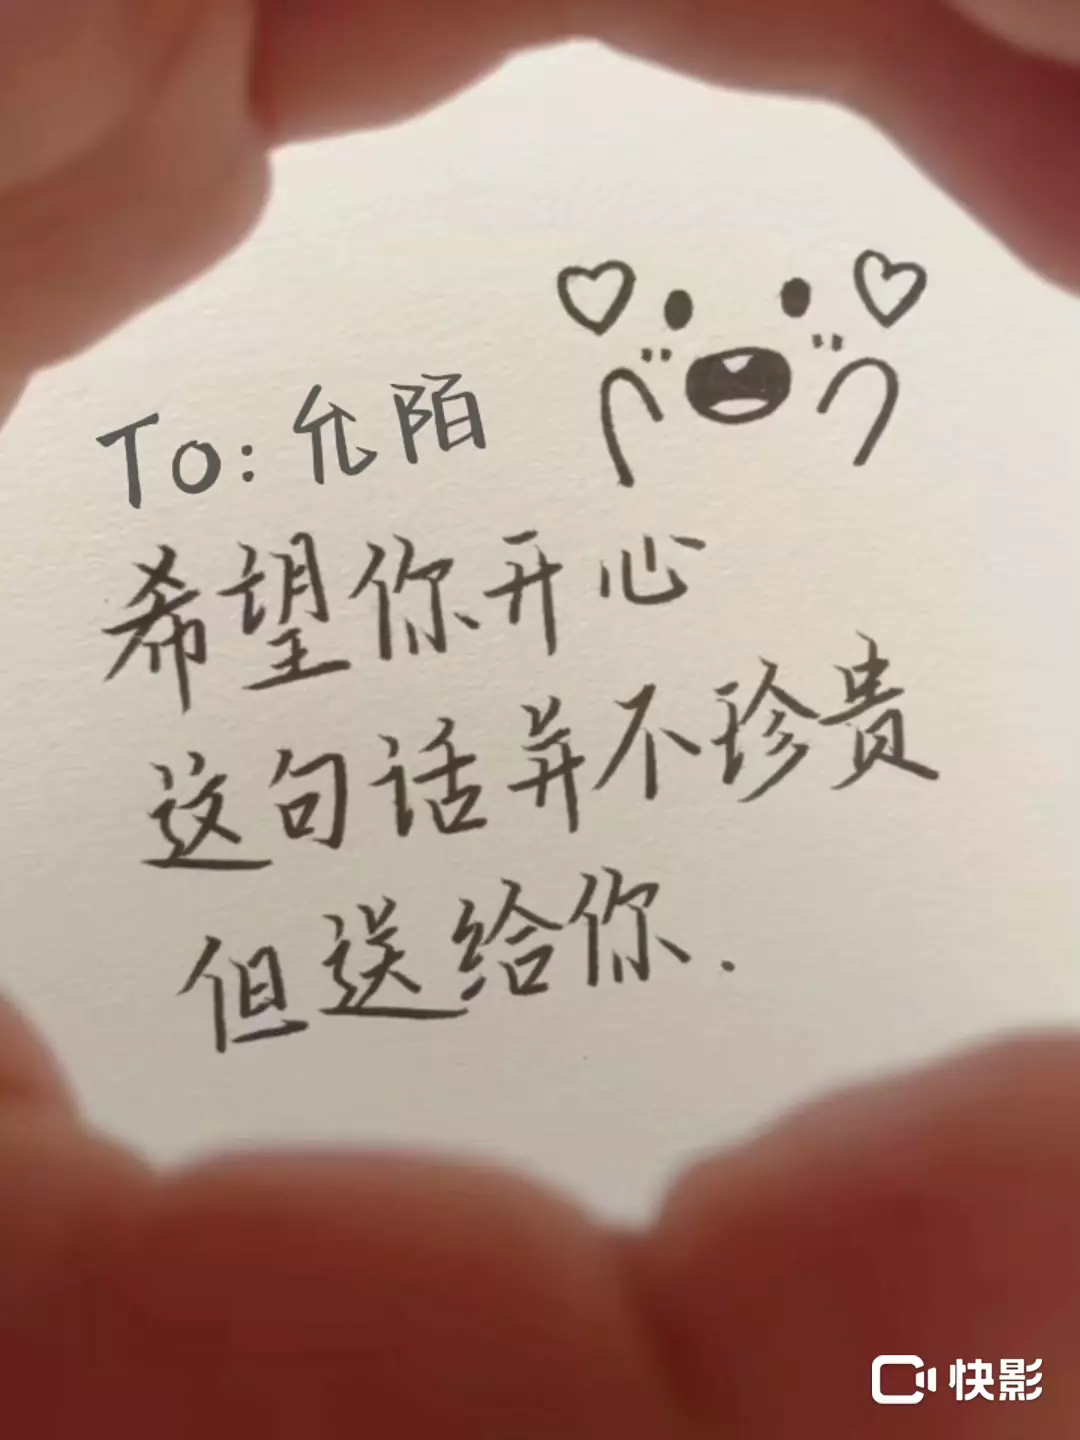 To: 允陌
希望你开心
这句话并不珍贵
但送给你.
快影